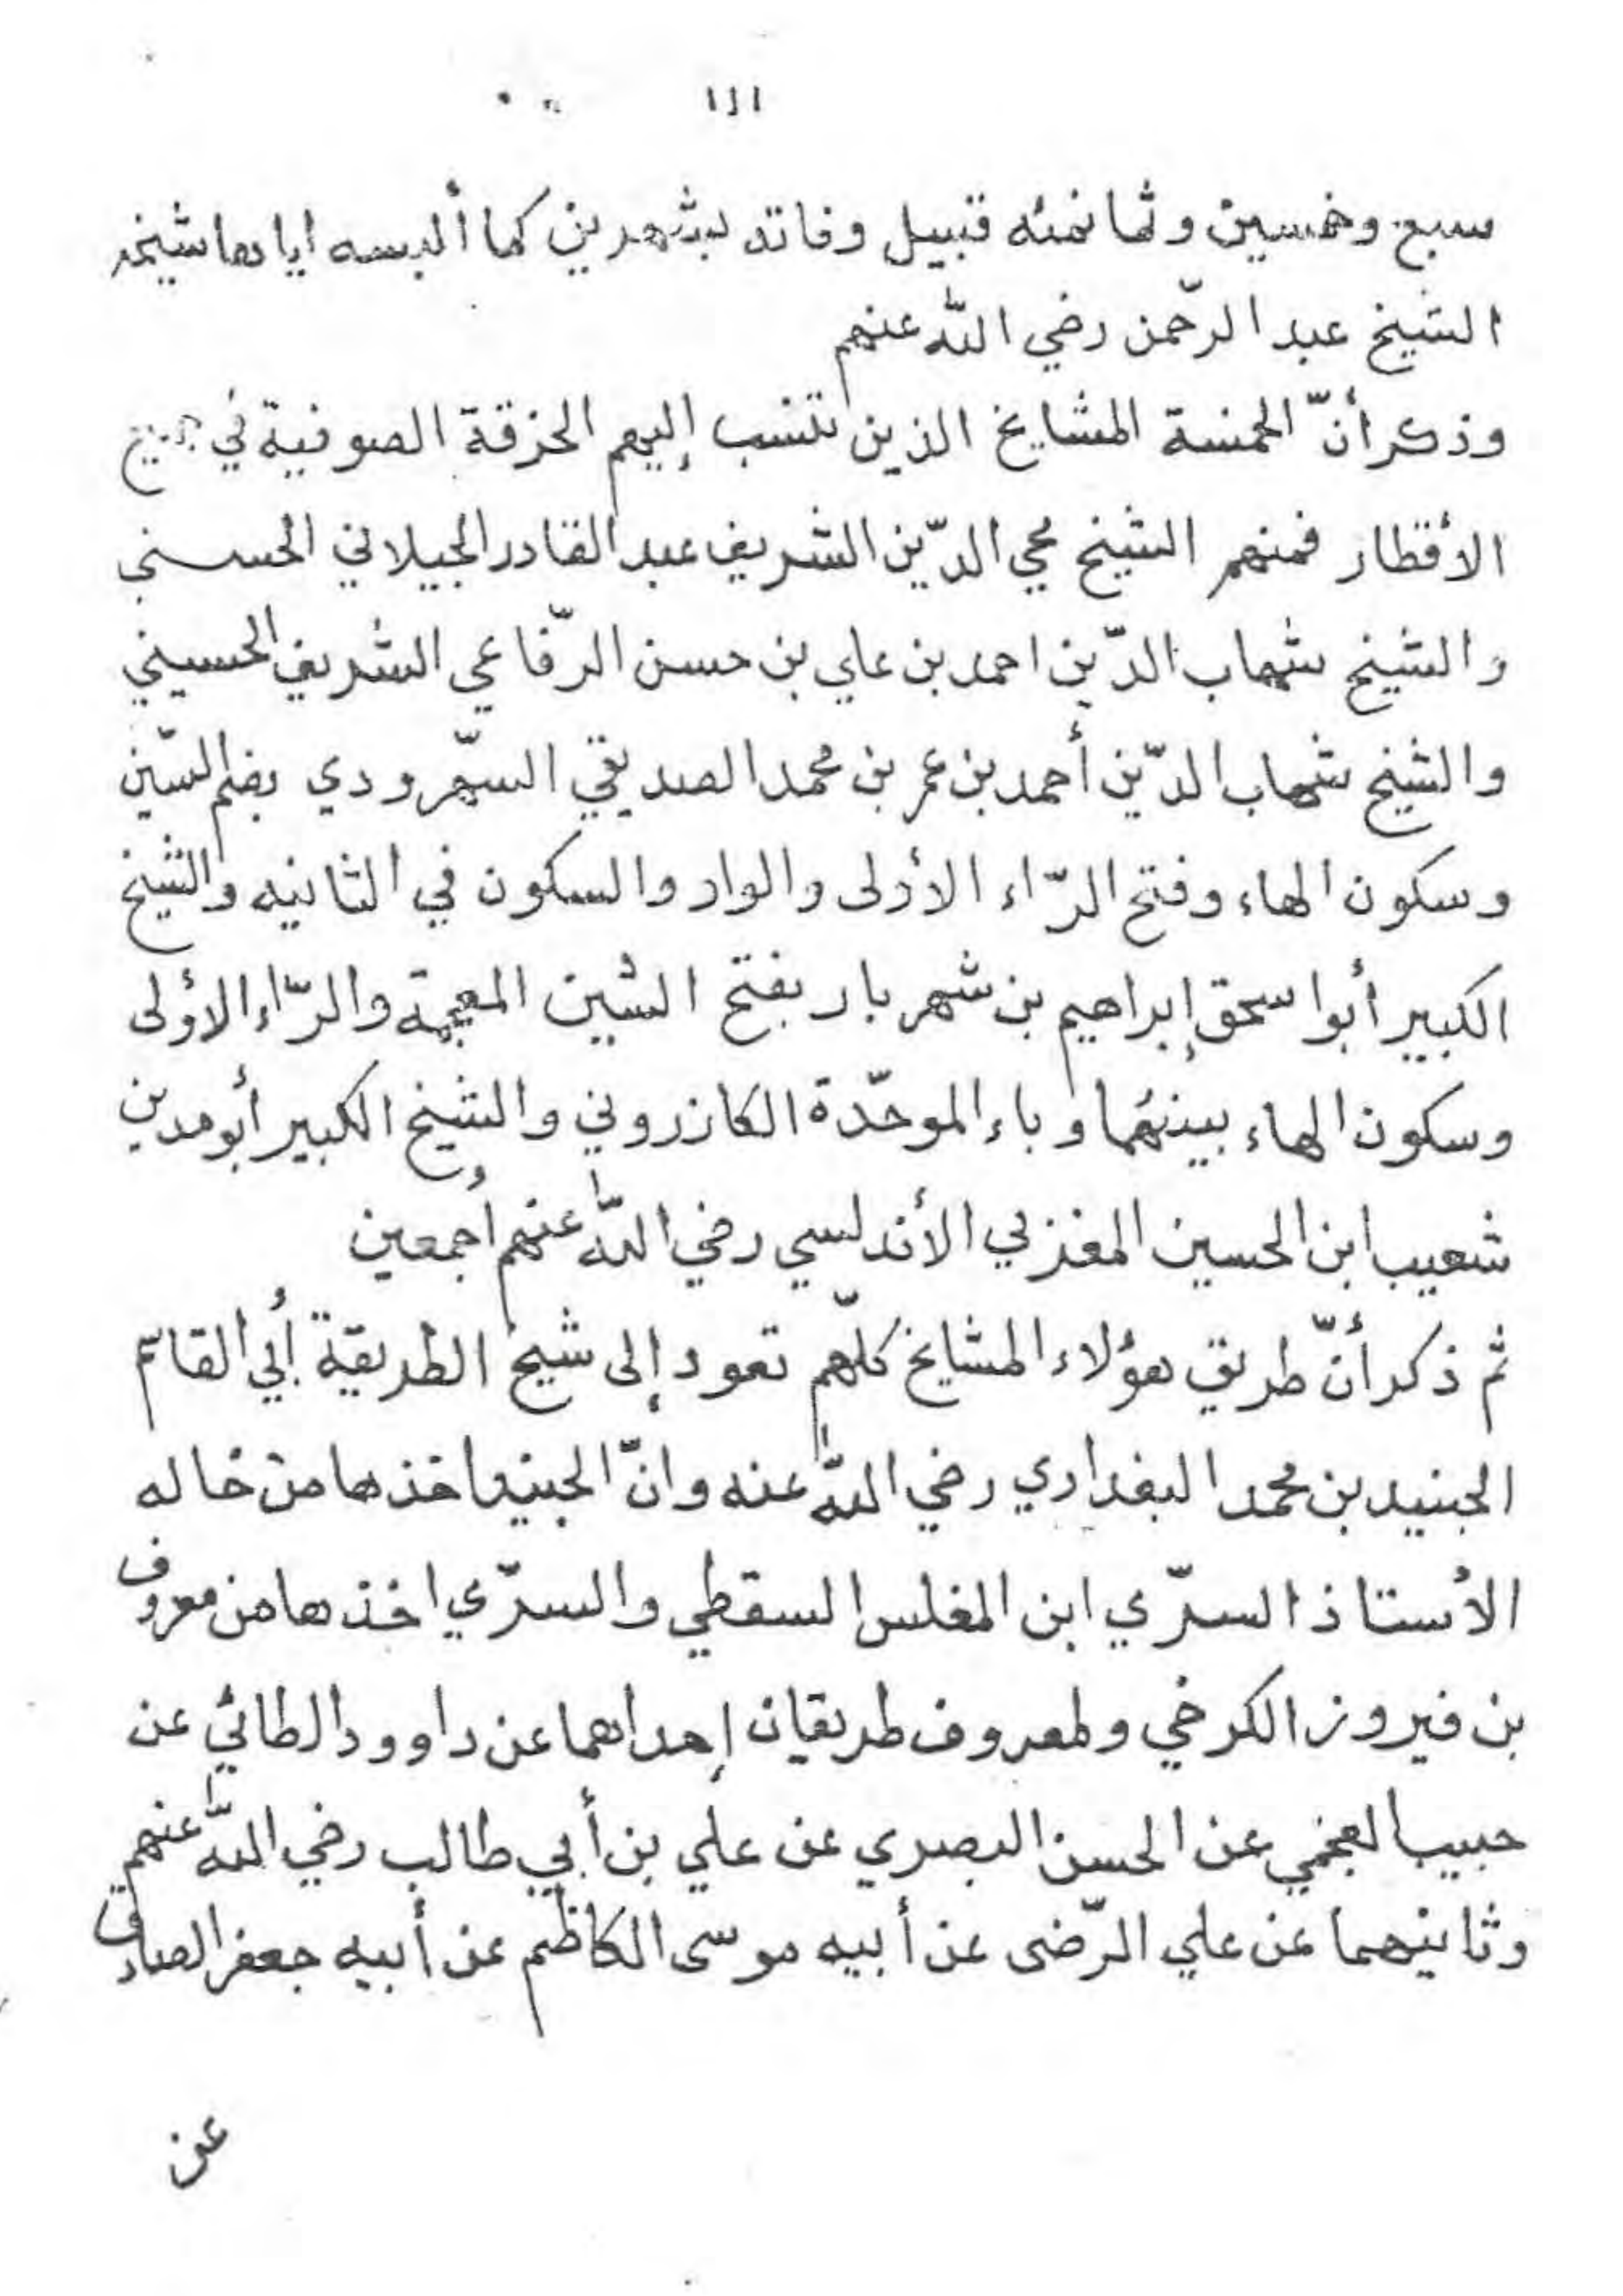 ١١١
سبع وخمسين وثمانمئه قبيل وفاته بشهرين كما ألبسه اياها شيخه
الشيخ عبد الرّحمن رضي اللّه عنهم
وذكر أنّ الخمسة المشايخ الذين تنسب إليهم الخرقة الصوفية في جميع
الأقطار فمنهم الشيخ محي الدّين الشريف عبد القادر الجيلاني الحسني
والشيخ شهاب الدّين احمد بن علي بن حسن الرّفاعي الشريف الحسيني
والشيخ شهاب الدّين أحمد بن عمر بن محمد الصديقي السّهرودي بضم السّين
وسكون الهاء وفتح الرّاء الأولى والواو والسكون في الثانيه والشيخ
الكبير أبوا سحق إبراهيم بن شهر بار بفتح الشين المعجمة والرّاء الأولى
وسكون الهاء بينهما وباء الموحّدة الكازروني والشيخ الكبير أبو مدين
شعيب ابن الحسين المغربي الأندلسي رضي اللّه عنهم أجمعين
ثم ذكر أنّ طريق هؤلاء المشايخ كلّهم تعود إلى شيخ الطريقة أبي القاسم
الجنيد بن محمد البغدادي رضي اللّه عنه وانّ الجنيد اخذها من خاله
الأستاذ السرّي ابن المغلس السقطي والسرّي اخذها من معروف
بن فيروز الكرخي ولمعروف طريقان إحداهما عن داوود الطائي عن
حبيب العجمي عن الحسن البصري عن علي بن أبي طالب رضي اللّه عنهم
وثانيهما عن علي الرّضى عن أبيه موسى الكاظم عن أبيه جعفر الصادق
عن